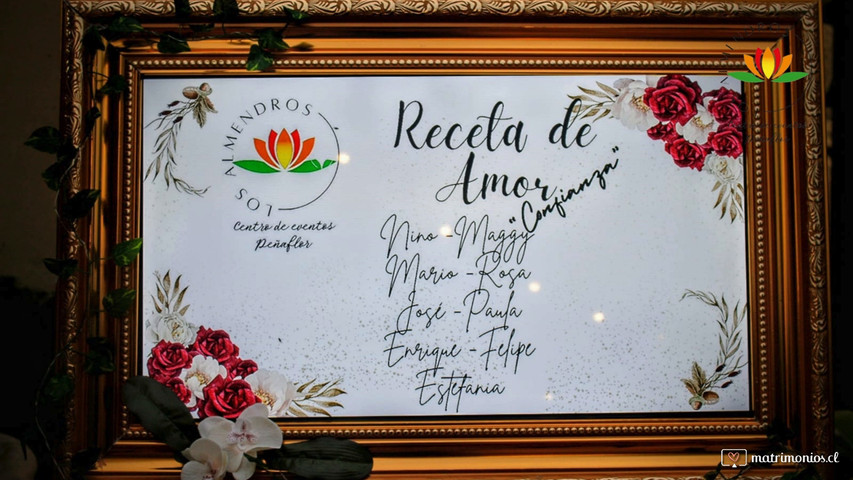 LOS ALMENDROS
Centro de eventos
Peñaflor
Receta de
Amor
"Confianza"
Nino - Maggy
Mario - Rosa
José - Paula
Enrique - Felipe
Estefania
matrimonios.cl